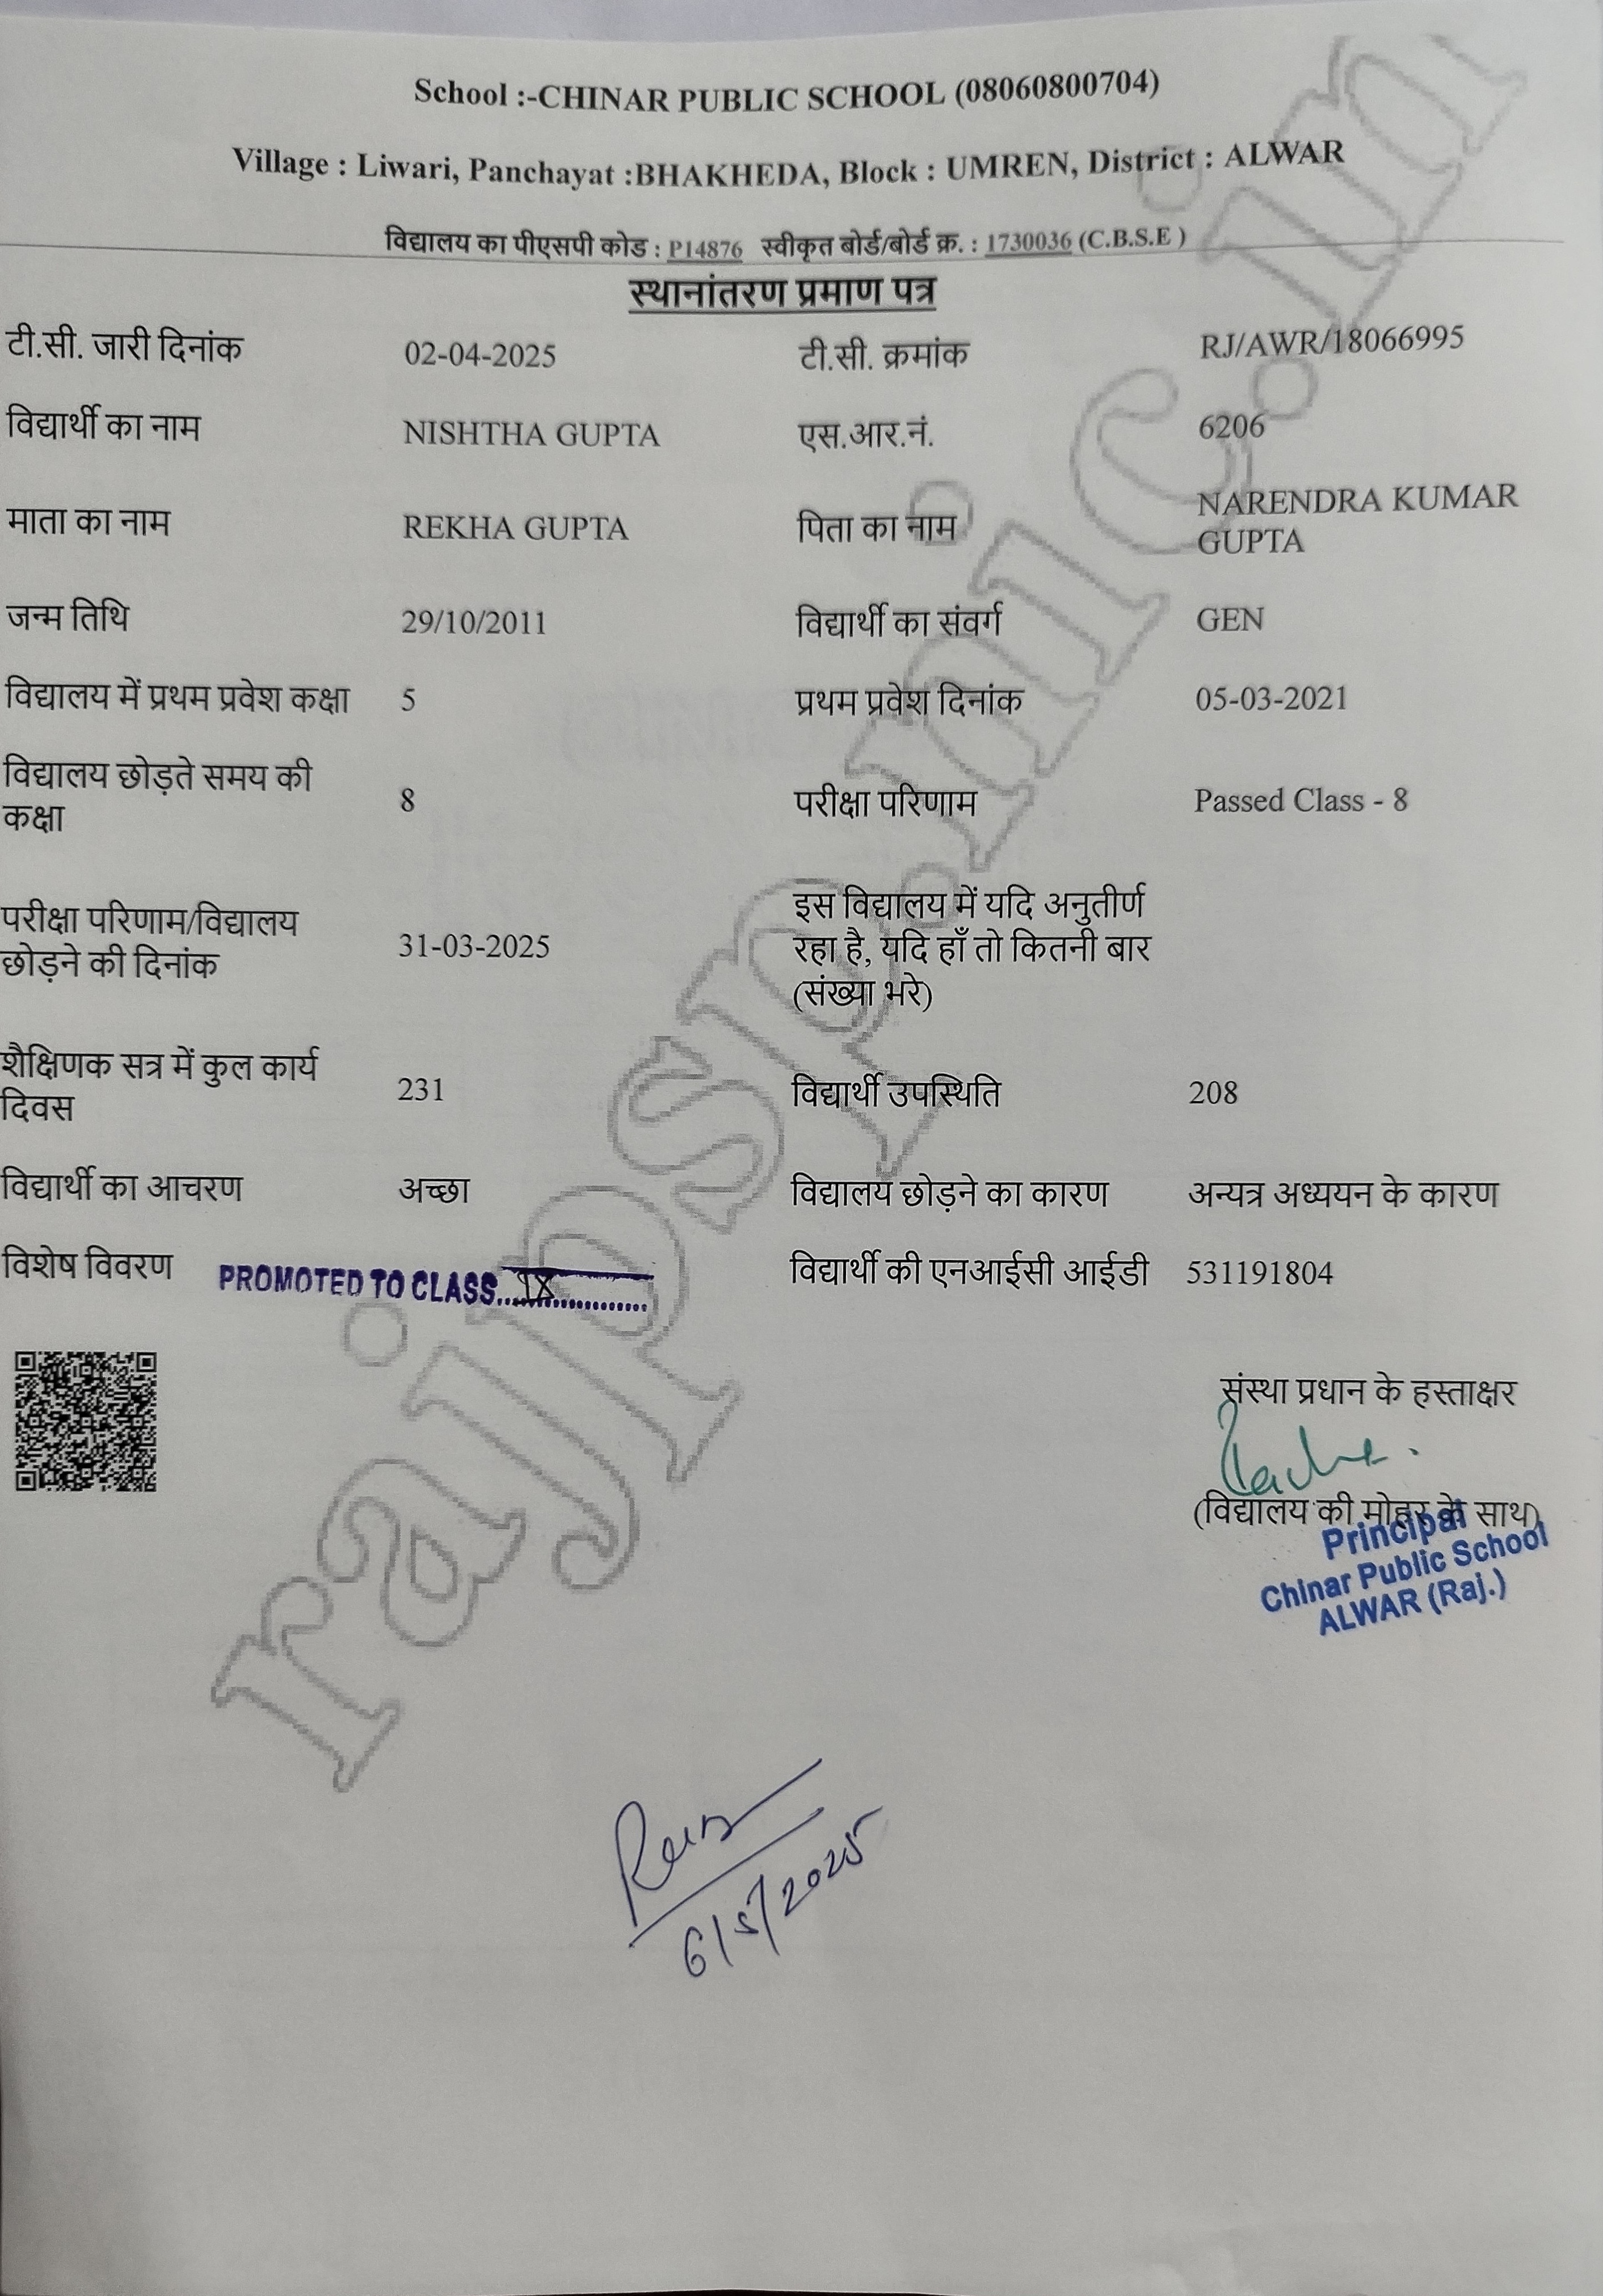 School :-CHINAR PUBLIC SCHOOL (08060800704)
Village : Liwari, Panchayat :BHAKHEDA, Block : UMREN, District : ALWAR
विद्यालय का पीएसपी कोड : P14876 स्वीकृत बोर्ड/बोर्ड क्र. : 1730036 (C.B.S.E )
स्थानांतरण प्रमाण पत्र
टी.सी. जारी दिनांक 02-04-2025 टी.सी. क्रमांक RJ/AWR/18066995
विद्यार्थी का नाम NISHTHA GUPTA एस.आर.नं. 6206
माता का नाम REKHA GUPTA पिता का नाम NARENDRA KUMAR
GUPTA
जन्म तिथि 29/10/2011 विद्यार्थी का संवर्ग GEN
विद्यालय में प्रथम प्रवेश कक्षा 5 प्रथम प्रवेश दिनांक 05-03-2021
विद्यालय छोड़ते समय की
कक्षा 8 परीक्षा परिणाम Passed Class - 8
परीक्षा परिणाम/विद्यालय
छोड़ने की दिनांक 31-03-2025
इस विद्यालय में यदि अनुतीर्ण
रहा है, यदि हाँ तो कितनी बार
(संख्या भरे)
शैक्षिणक सत्र में कुल कार्य
दिवस 231 विद्यार्थी उपस्थिति 208
विद्यार्थी का आचरण अच्छा विद्यालय छोड़ने का कारण अन्यत्र अध्ययन के कारण
विशेष विवरण PROMOTED TO CLASS...IX............... विद्यार्थी की एनआईसी आईडी 531191804
संस्था प्रधान के हस्ताक्षर
(विद्यालय की मोहर के साथ)
Principal
Chinar Public School
ALWAR (Raj.)
6/5/2025
rajpsp.nic.in